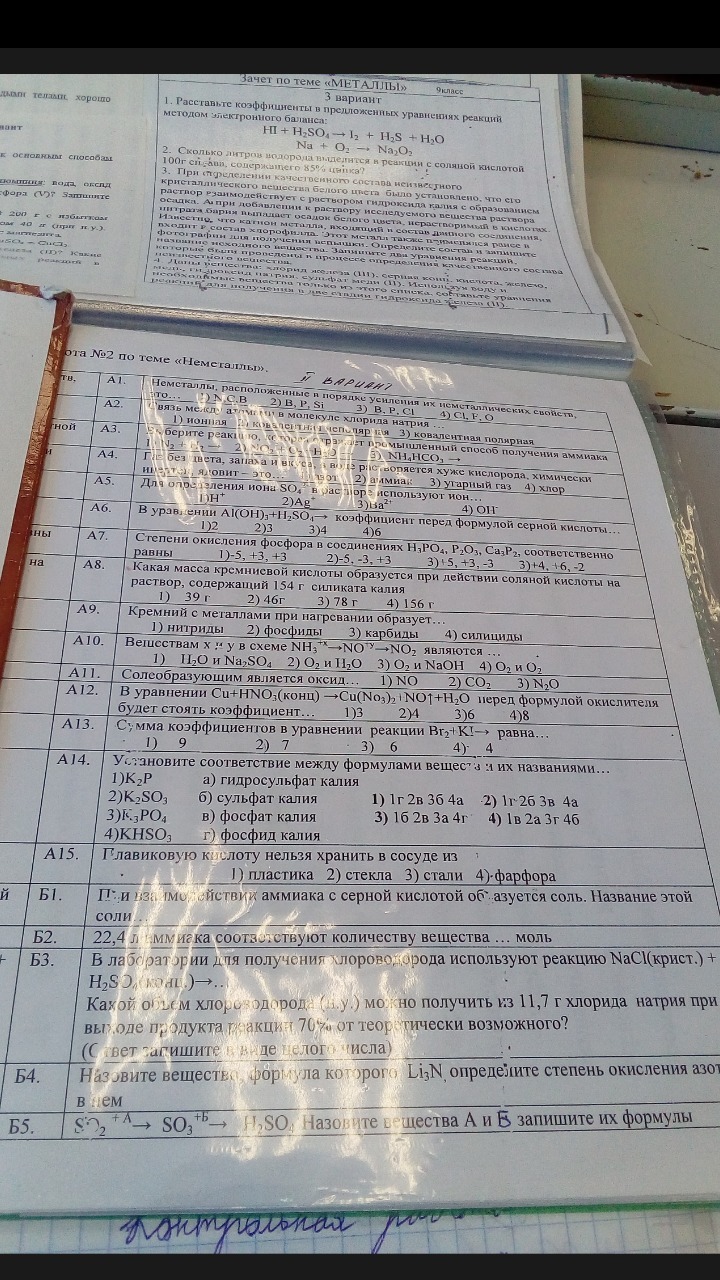 Зачет по теме «МЕТАЛЛЫ» 9класс
3 вариант
1. Расставьте коэффициенты в предложенных уравнениях реакций
методом электронного баланса:
HI + H₂SO₄→ I₂ + H₂S + H₂O
Na + O₂ → Na₂O₂
2. Сколько литров водорода выделится в реакции с соляной кислотой
100г сплава, содержащего 85% цинка?
3. При определении качественного состава неизвестного
кристаллического вещества белого цвета было установлено, что его
раствор взаимодействует с раствором гидроксида калия с образованием
осадка. А при добавлении к раствору исследуемого вещества раствора
нитрата бария выпадает осадок белого цвета, нерастворимый в кислотах.
Известно, что катион металла, входящий в состав данного соединения,
входит в состав хлорофилла. Этот металл также применялся ранее в
фотографии для получения вспышки. Определите состав и запишите
название исходного вещества. Запишите два уравнения реакций,
которые были проведены в процессе определения качественного состава
неизвестного вещества.
Даны вещества: хлорид железа (III), серная конц. кислота, железо,
медь, гидроксид натрия, сульфат меди (II). Используя воду и
необходимые вещества только из этого списка, составьте уравнения
реакций для получения в две стадии гидроксида железа (II)
дыми телами, хорошо
вант
к основным способам
вода, оксид
сфора (V)? Запишите
200 г с избытком
ом 40 л (при н.у.)
ота №2 по теме «Неметаллы».
II вариант
тв,
А1. Неметаллы, расположенные в порядке усиления их неметаллических свойств,
это… 1) N,C,B 2) B, P, Si 3) B, P, Cl 4) Cl, F, O
А2. Связь между атомами в молекуле хлорида натрия …
1) ионная 2) ковалентная неполярная 3) ковалентная полярная
тной
А3. Выберите реакцию, которая отражает промышленный способ получения аммиака
3) NH₄HCO₃ →
и
А4. Газ без цвета, запаха и вкуса, в воде растворяется хуже кислорода, химически
инертен, ядовит – это… 1) азот 2) аммиак 3) угарный газ 4) хлор
А5. Для определения иона SO₄²⁻ в растворе используют ион…
1)H⁺ 2)Ag⁺ 3)Ba²⁺ 4) OH⁻
А6. В уравнении Al(OH)₃+H₂SO₄→ коэффициент перед формулой серной кислоты…
1)2 2)3 3)4 4)6
ны
А7. Степени окисления фосфора в соединениях H₃PO₄, P₂O₃, Ca₃P₂, соответственно
равны 1)-5, +3, +3 2)-5, -3, +3 3)+5, +3, -3 3)+4, +6, -2
на
А8. Какая масса кремниевой кислоты образуется при действии соляной кислоты на
раствор, содержащий 154 г силиката калия
1) 39 г 2) 46г 3) 78 г 4) 156 г
А9. Кремний с металлами при нагревании образует…
1) нитриды 2) фосфиды 3) карбиды 4) силициды
А10. Веществам х и у в схеме NH₃⁺ˣ→NO⁺ʸ→NO₂ являются …
1) H₂O и Na₂SO₄ 2) O₂ и H₂O 3) O₂ и NaOH 4) O₂ и O₂
А11. Солеобразующим является оксид… 1) NO 2) CO₂ 3) N₂O
А12. В уравнении Cu+HNO₃(конц) →Cu(No₃)₂+NO↑+H₂O перед формулой окислителя
будет стоять коэффициент… 1)3 2)4 3)6 4)8
А13. Сумма коэффициентов в уравнении реакции Br₂+KI→ равна…
1) 9 2) 7 3) 6 4) 4
А14. Установите соответствие между формулами веществ и их названиями…
1)K₃P а) гидросульфат калия
2)K₂SO₃ б) сульфат калия 1) 1г 2в 3б 4а 2) 1г 2б 3в 4а
3)K₃PO₄ в) фосфат калия 3) 1б 2в 3а 4г 4) 1в 2а 3г 4б
4)KHSO₃ г) фосфид калия
А15. Плавиковую кислоту нельзя хранить в сосуде из
1) пластика 2) стекла 3) стали 4) фарфора
й
Б1. При взаимодействии аммиака с серной кислотой образуется соль. Название этой
соли…
Б2. 22,4 л аммиака соответствуют количеству вещества … моль
+
Б3. В лаборатории для получения хлороводорода используют реакцию NaCl(крист.) +
H₂SO₄(конц.)→…
Какой объем хлороводорода (н.у.) можно получить из 11,7 г хлорида натрия при
выходе продукта реакции 70% от теоретически возможного?
(Ответ запишите в виде целого числа)
Б4. Назовите вещество, формула которого Li₃N, определите степень окисления азот
в нем
Б5. SO₂ ⁺ᴬ→ SO₃⁺ᴮ→ H₂SO₄ Назовите вещества А и Б запишите их формулы
Контрольная